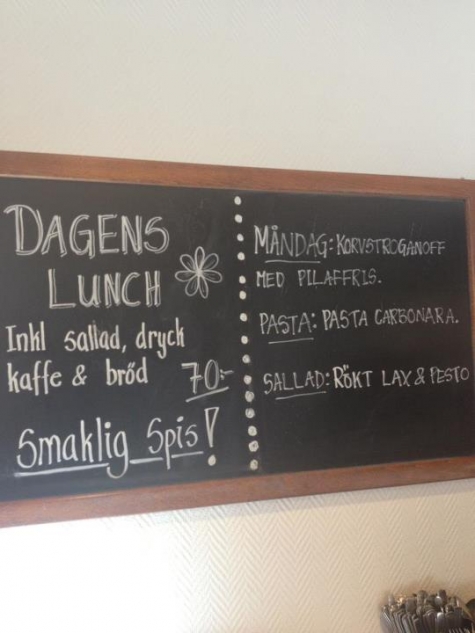 DAGENS
LUNCH
Inkl sallad, dryck
kaffe & bröd 70:-
Smaklig Spis!
MÅNDAG: KORVSTROGANOFF
MED PILAFFRIS.
PASTA: PASTA CARBONARA.
SALLAD: RÖKT LAX & PESTO